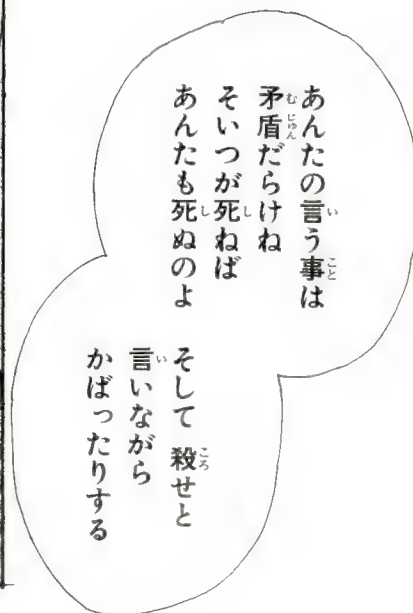 あんたの言う事は
矛盾だらけね
そいつが死ねば
あんたも死ぬのよ
そして 殺せと
言いながら
かばったりする